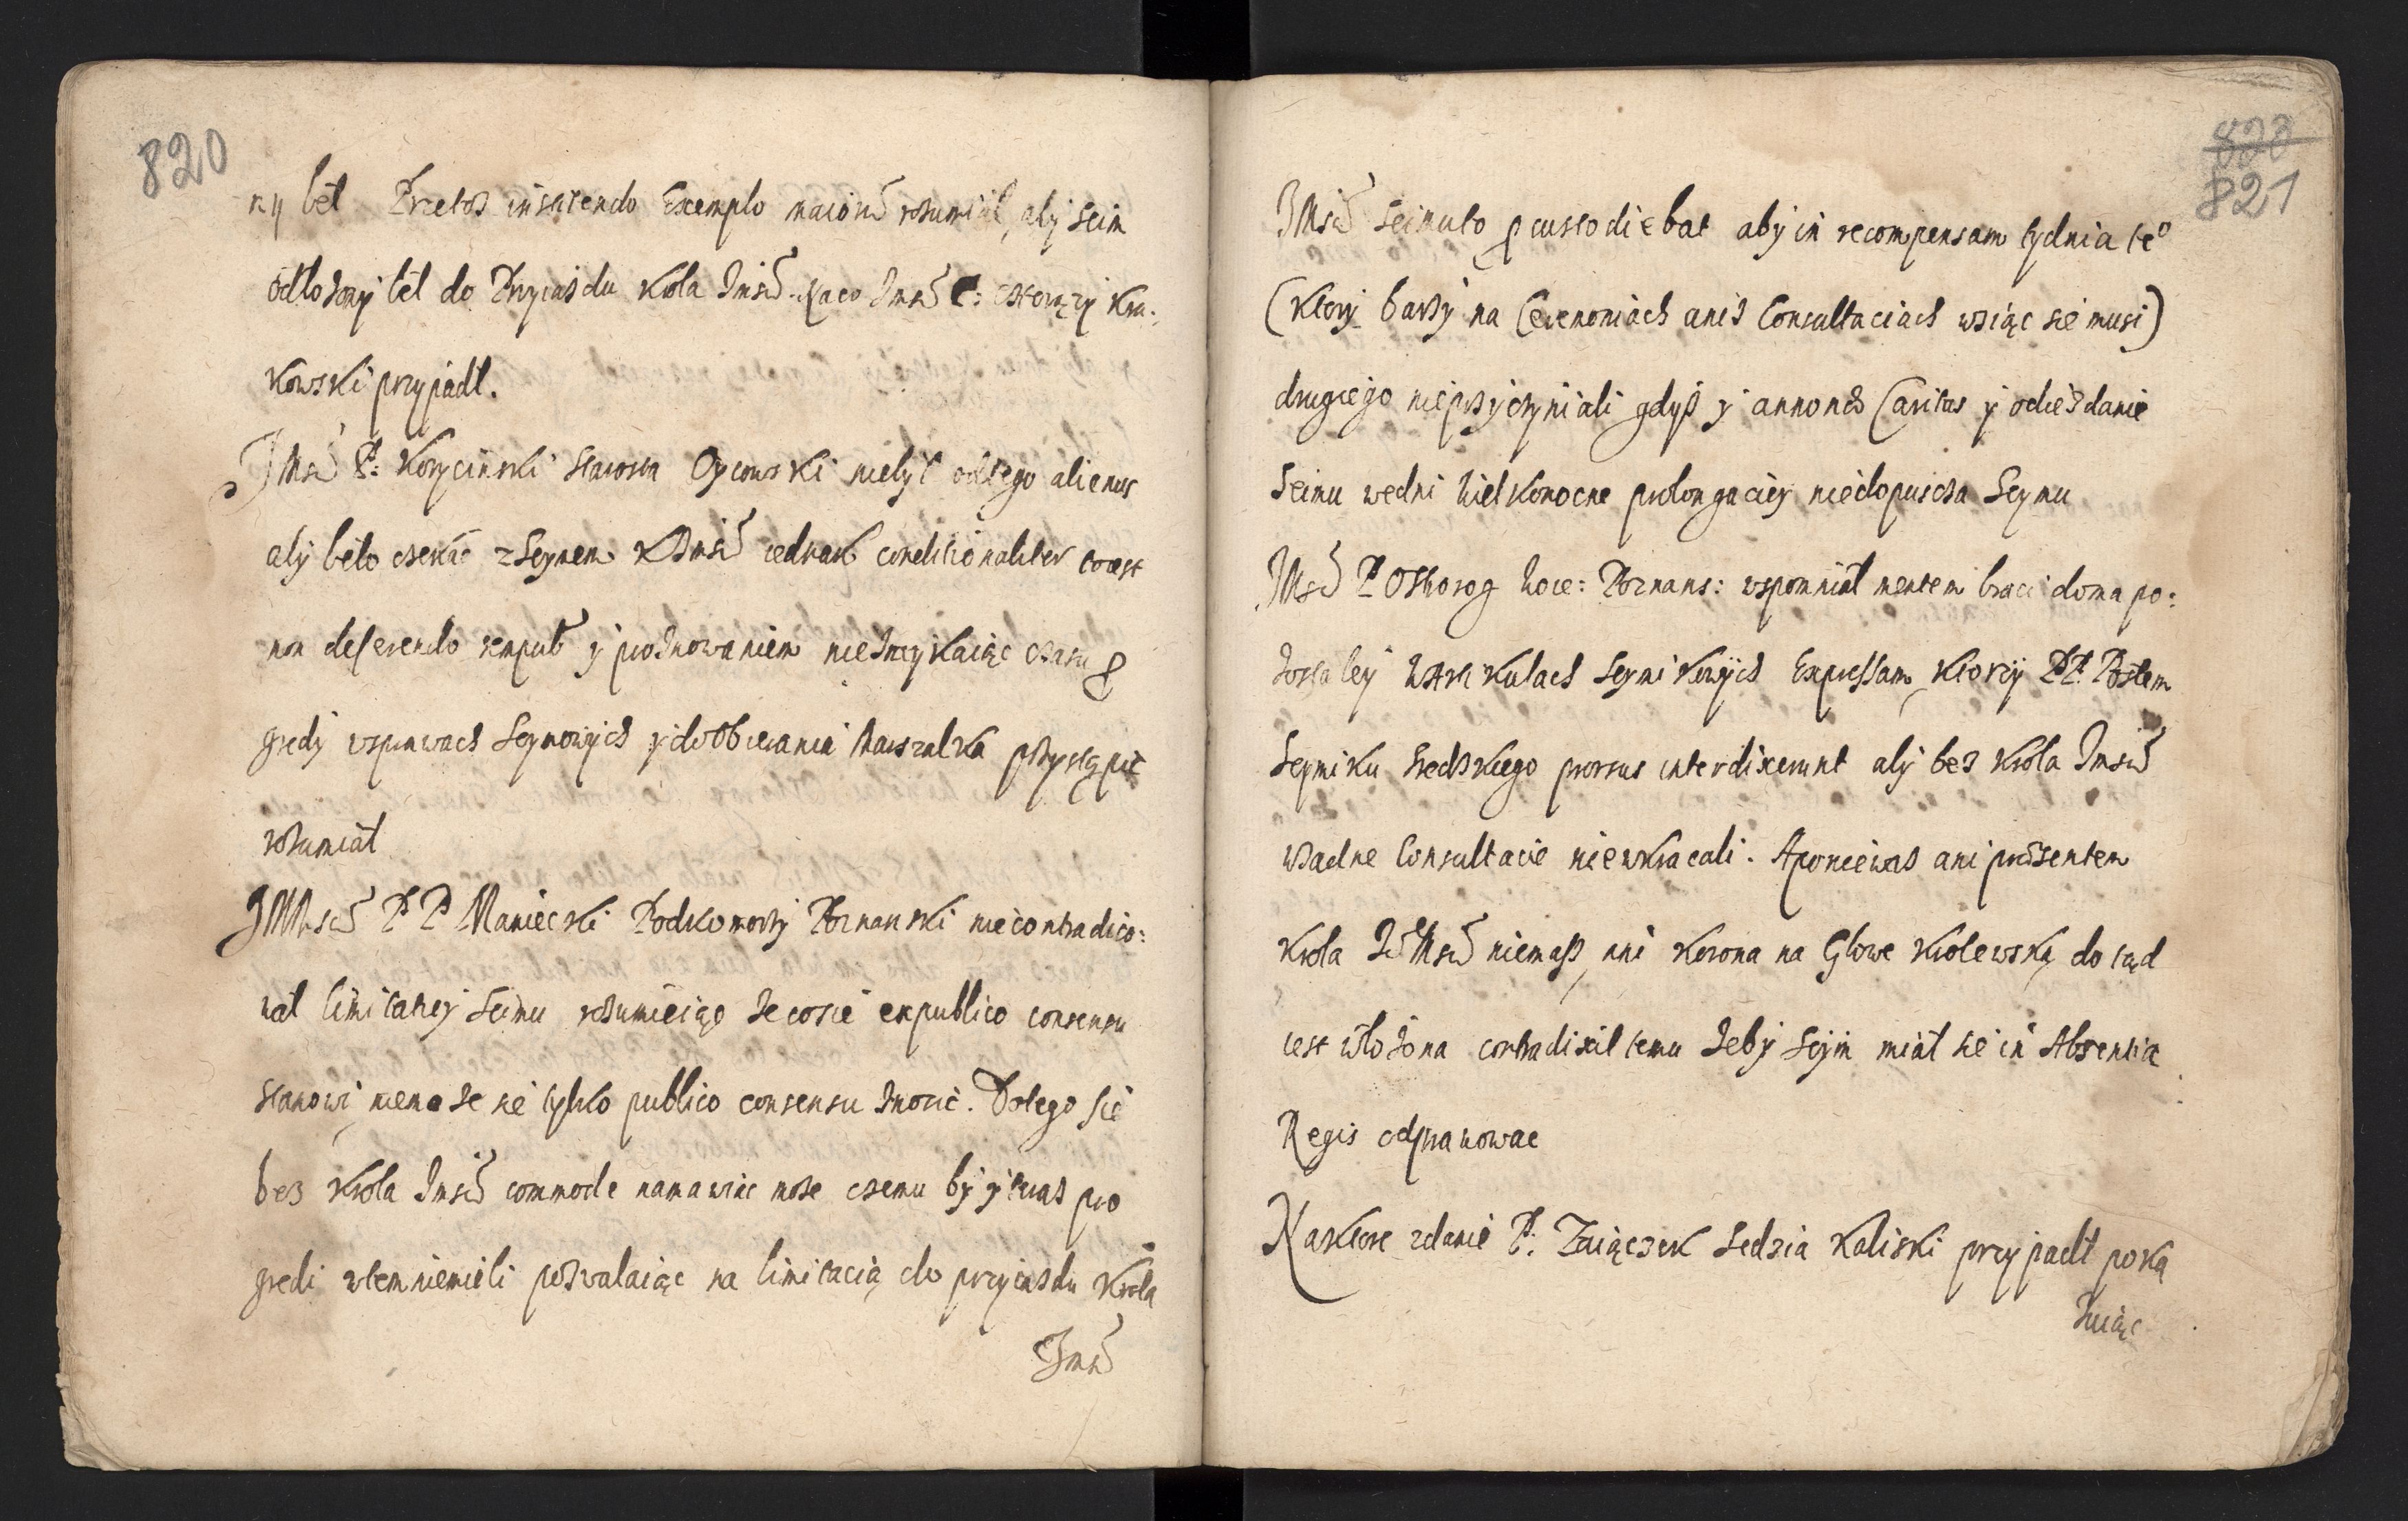 820
ny bêł Przetoż insistendo Exemplo maiorũ rozumiał, aby Seim
odłożony bêł do Przyiazdu Krola Jmsci. Na co Jmsć P: Chorąży Kra-
kowski przypadł.
JMsć P: Koryciński Starosta Oycowski niebył od tego alienus
aby beło czekać z Seymem KJmsci iednak conditionaliter to iest
non deserendo rempub y prożnowaniem nieztrzykaiąc czasu p
gredi w sprawach Seymowych y do obierania Marszalka przystąpić
rozumiał
JMMsć P P Maniecki Podkomorzy Poznanski nie contradico:
wał limitatiey Seimu rozumieiąc że co sie ex publico consensu
stanowi, niemoże sie tylko publico consensu znosić. Do tego sie
bez Krola Jmsci commode namawiac może czemu by y teraz pro
gredi w tem niemieli pozwalaiąc na limitacią do przyiazdu Krola
Jmsci
828
821
JMsci Seimu to pcustodiebat aby in recompensam tydnia teº
(Ktory barzy na Ceremoniach aniż Consultaciach wziąc sie musi)
drugiego nieprzyczyniali gdyż y annonæ Caritas y odieżdanie
Seimu wedni Wielkonocne prolongaciey niedopuscza Seymu
JMsć P Ostrorog Woie: Poznans: wspomniał mentem braci doma po:
zostałey W Artikulach Seymikowych Expressam, Ktorzy PP. Posłem
Seymiku Sredzkiego prorsus interdixerunt aby bez Krola Jmsci
wżadne Consultacie niewkraczali. A poniewaz ani præsentem
Krola JeMsci niemasz, ani Korona na Głowe Krolewską do tąd
iest włożona contradixit temu żeby Seym miał sie in Absentia
Regis odprawowac
Naktore zdanie P: Zaiączek Sedzia Kaliski przypadł poka
zuiąc